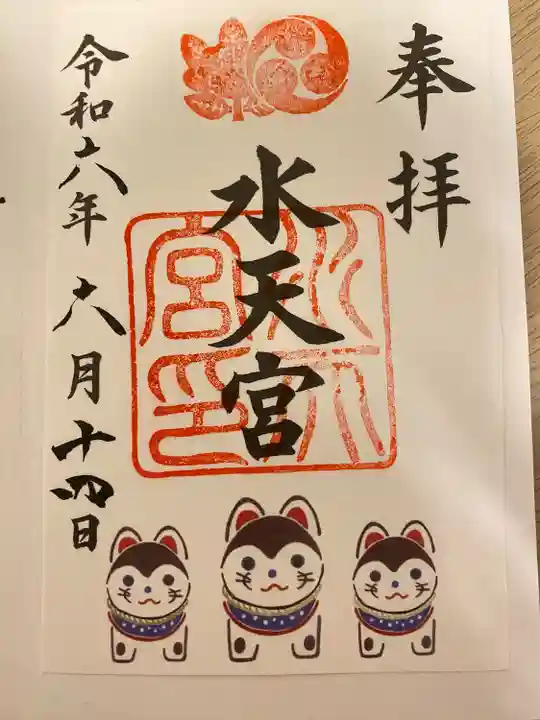 奉拝
水天宮
水天宮印
令和六年六月十四日